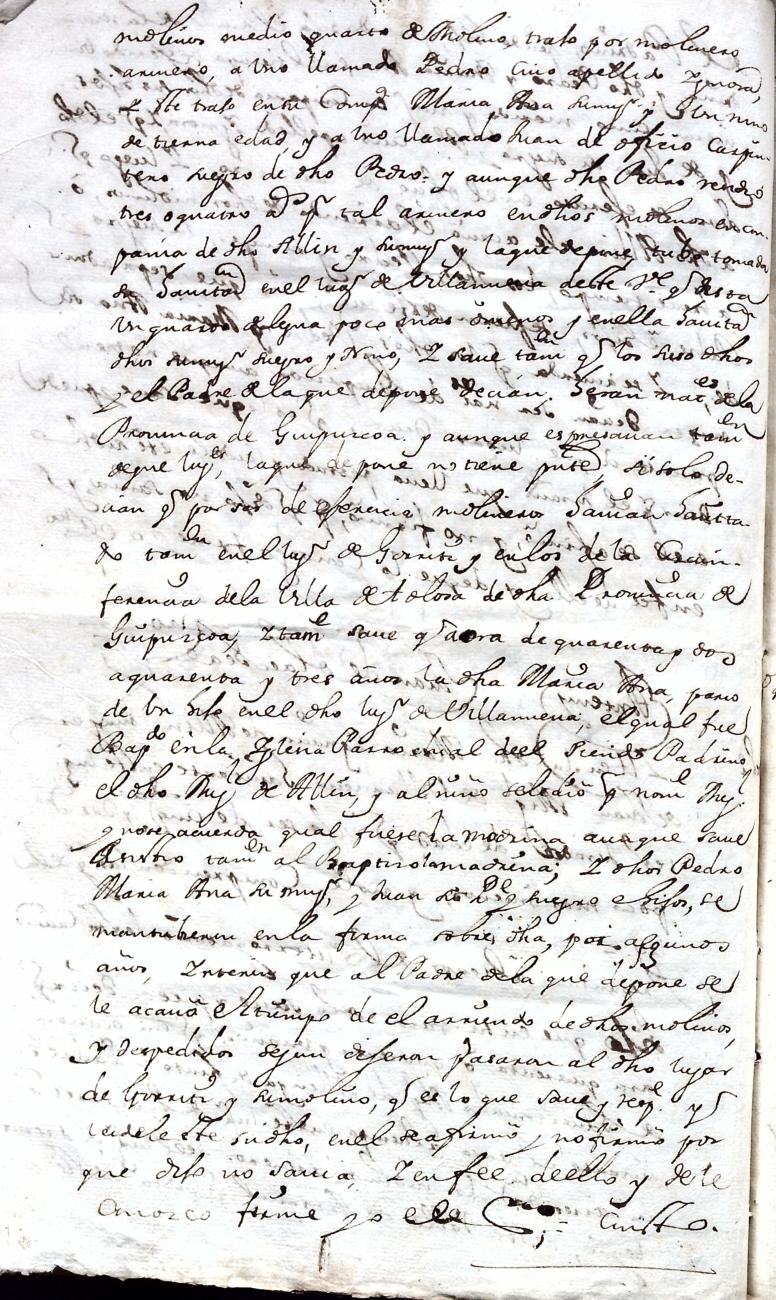 molinos medio quarto de Molino trato por molinero
arinero, a Uno llamado Pedro cuio apellido Ygnora,
Y este trajo en su Comp.ª Maria Ana su mug.r y Un nino
de tierna edad, y a Uno llamado Juan de oficio Carpin-
tero suegro de dho Pedro: y aunque dho Pedro rendio
tres o quatro a.s p.r tal arinero en dhos molinos en con-
pania de dho Allin y su mug.r y la que depone, tubo tomada
su havitaz.on en el lug.r de Villanueva de este V.e q.e dista
Un quarto de legua poco mas o menos y en ella havitava
dhos su mug.r suegro y Nino, Y save tam.en q.e los suso dhos
y el Padre de la que depone decian heran nat.es de la
Provincia de Guipuzcoa y aunque espresavan tam.en
de que lug.r, la que depone no tiene pnte, si solo de-
cian q.e por ser de exercicio molineros havian havita-
do tam.en en el lug.r de Gorriti y en los de la Circun-
ferencia de la Villa de tolosa de dha Provincia de
Guipuzcoa, Y tam.e save q.e aora de quarenta y dos
a quarenta y tres años la dha Maria Ana, pario
de Un hijo en el dho lug.r de Villanueva, el qual fue
Bap.do en la Yglesia Parroquial de el siendo Padrino
el dho Mig.l de Allin, y al niño se le dio p.r nom.e Mig.l
y no se acuerda qual fuese la madrina aunque save
asistio tam.en al Baptizo la madrina; Y dhos Pedro
Maria Ana su mug.r, y Juan su P.e y suegro e hijos, se
mantubieron en la forma sobre dha, por algunos
años, Ynterin que al Padre de la que depone se
le acavó el tiempo de el arriendo de dhos molinos,
y despedidos segun dijeron pasaron al dho lugar
de Gorriti y su molino, q.e es lo que save y resp.e y
leidole este su dho, en el se afirmó y no firmó por
que dijo no savia, Y en fee de ello y de le
Conozco firme yo el e Ss.no = Custo.